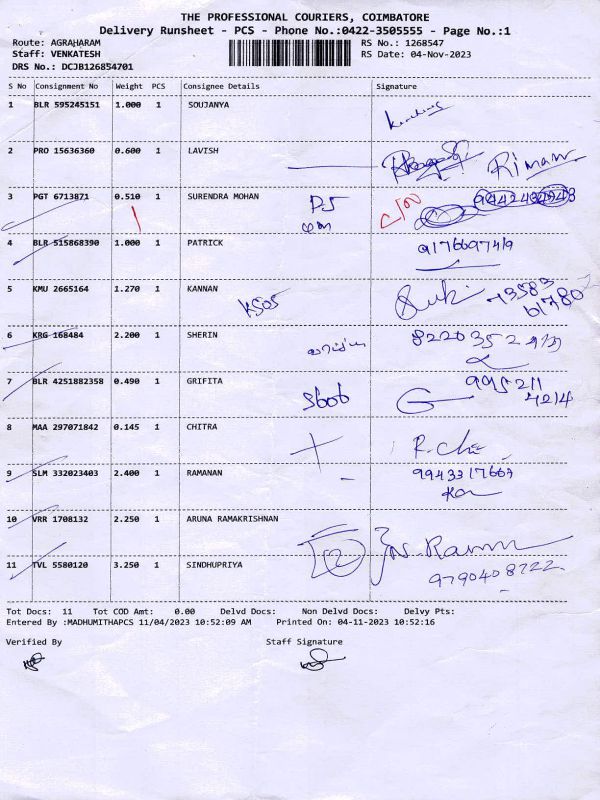 THE PROFESSIONAL COURIERS, COIMBATORE
Delivery Runsheet - PCS - Phone No.:0422-3505555 - Page No.:1
Route: AGRAHARAM RS No.: 1268547
Staff: VENKATESH RS Date: 04-Nov-2023
DRS No.: DCJB126854701
S No Consignment No Weight PCS Consignee Details Signature
1 BLR 595245151 1.000 1 SOUJANYA
2 PRO 15636360 0.600 1 LAVISH
3 PGT 6713871 0.510 1 SURENDRA MOHAN C/O
4 BLR 515868390 1.000 1 PATRICK 9176697419
5 KMU 2665164 1.270 1 KANNAN 73583
61780
6 KRG 168484 2.200 1 SHERIN
7 BLR 4251882358 0.490 1 GRIFITA 995211
4214
8 MAA 297071842 0.145 1 CHITRA
9 SLM 332023403 2.400 1 RAMANAN 9943317667
10 VRR 1708132 2.250 1 ARUNA RAMAKRISHNAN
11 TVL 5580120 3.250 1 SINDHUPRIYA 9790408722
Tot Docs: 11 Tot COD Amt: 0.00 Delvd Docs: Non Delvd Docs: Delvy Pts:
Entered By :MADHUMITHAPCS 11/04/2023 10:52:09 AM Printed On: 04-11-2023 10:52:16
Verified By Staff Signature